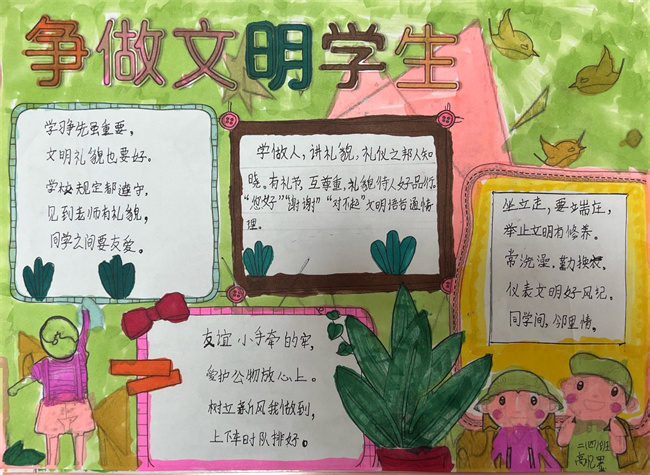 争做文明学生
学习争先虽重要，
文明礼貌也要好。
学校规定都遵守，
见到老师有礼貌，
同学之间要友爱。
学做人，讲礼貌，礼仪之邦人知
晓。有礼节，互尊重，礼貌待人好品行。
“您好”“谢谢”“对不起”文明语言通情
理。
坐立走，要端庄，
举止文明有修养。
常洗澡，勤换衣，
仪表文明好风纪。
同学间，邻里情。
友谊小手牵的牢，
爱护公物放心上。
树立新风我做到，
上下车时队排好。
二（四）班
高